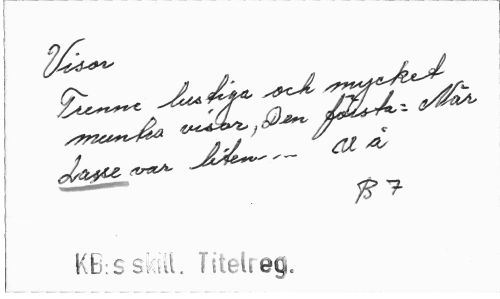 Visor
Trenne lustiga och mycket
muntra visor, Den första: När
Lasse var liten... U å
B 7
KB:s skill. Titelreg.